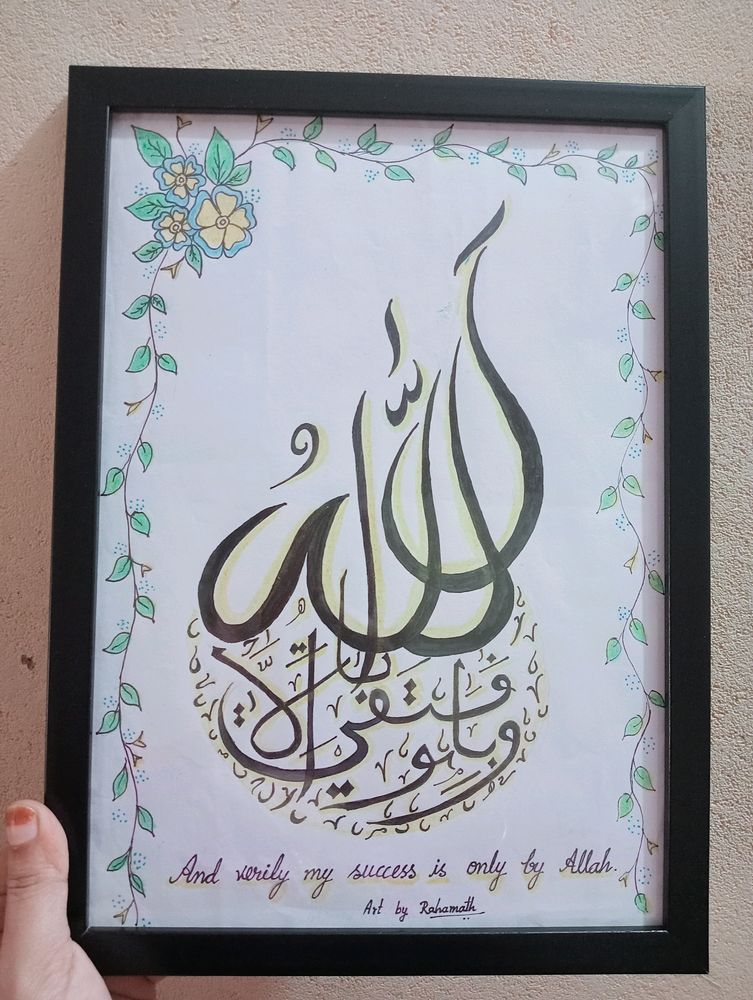 وما توفيقي إلا بالله
And verily my success is only by Allah.
Art by Rahamath